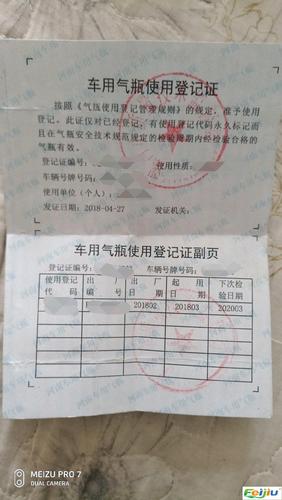 车用气瓶使用登记证
按照《气瓶使用登记管理规则》的规定，准予使用
登记。此证仅对已经登记，有使用登记代码永久标记而
且在气瓶安全技术规范规定的检验周期内经检验合格的
气瓶有效。
登记证编号: 使用性质:
车辆号牌号码:
使用单位（个人）:
发证日期: 2018-04-27 发证机关:
车用气瓶使用登记证副页
登记证编号: 车辆号牌号码:
使用登记 出厂 出厂 起用 下次检
代码 编号 日期 日期 验日期
201802 201803 202003
MEIZU PRO 7
DUAL CAMERA
Feijiu